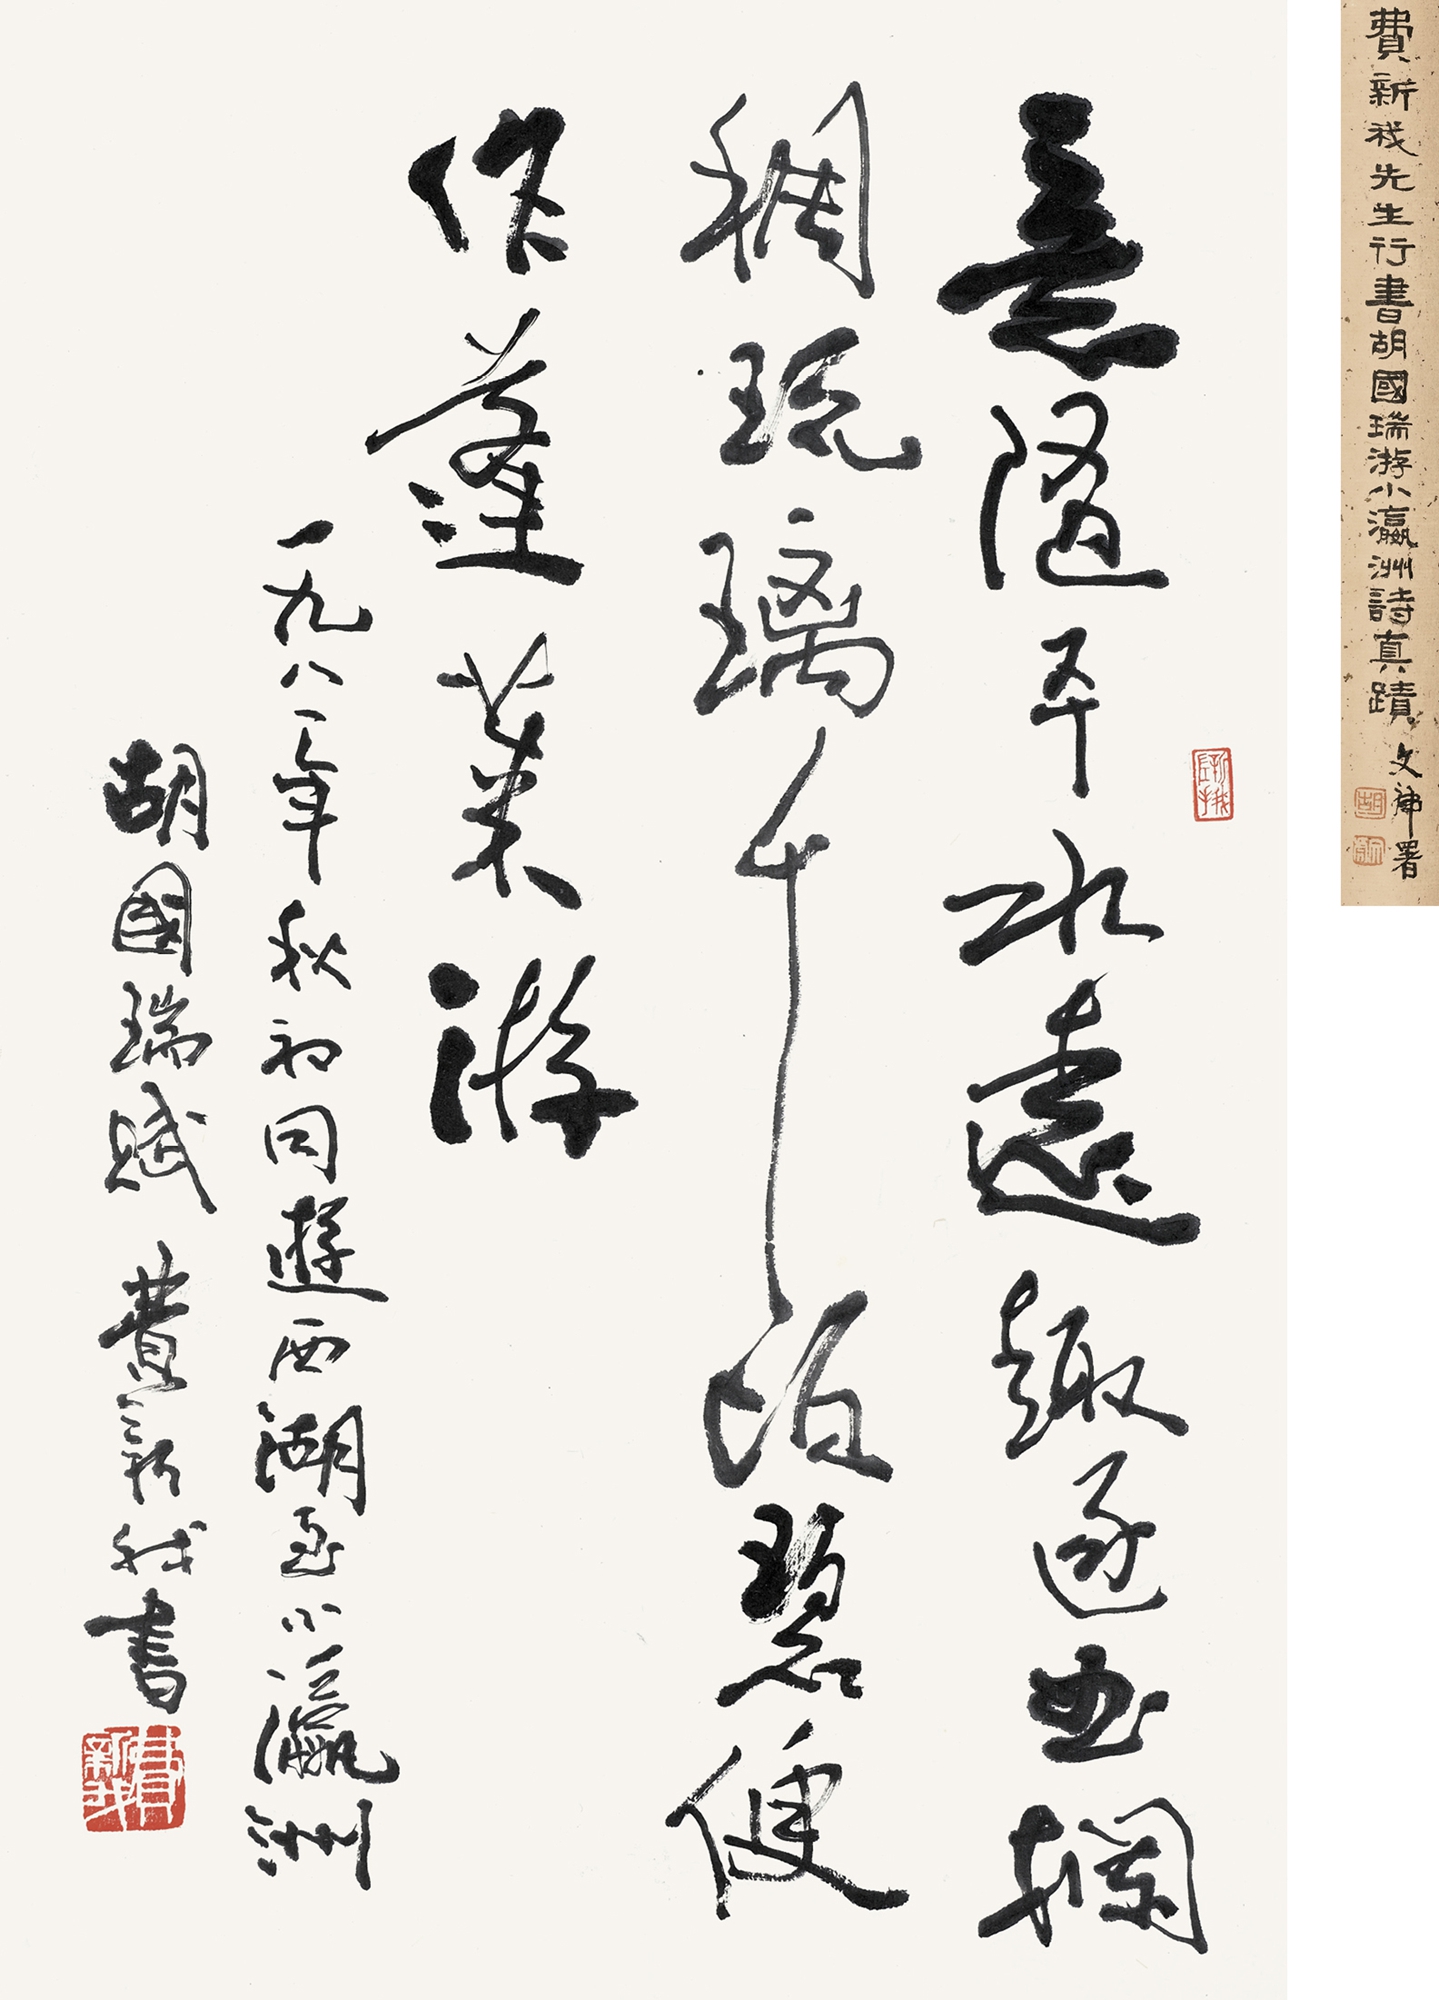 費新我先生行書胡國瑞游小瀛洲詩真蹟 文 署
意隨平水遠趣逐曲欄
稠琉璃千頃碧便
作蓬萊游
一九八一年秋初同遊西湖至小瀛洲
胡國瑞賦 費新我書
費新我